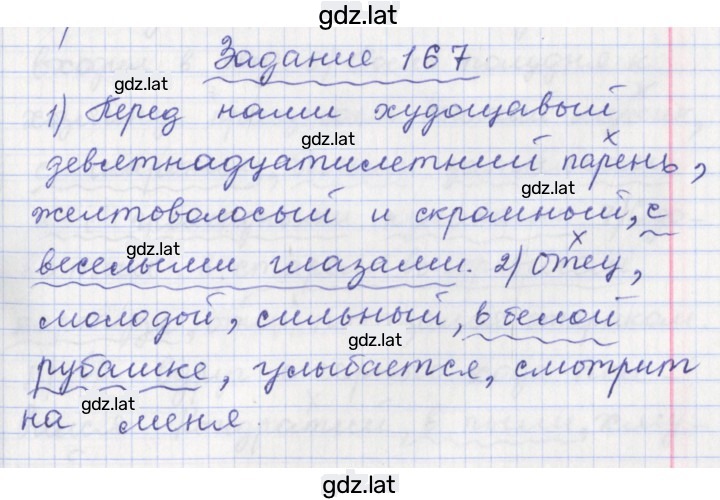 gdz.lat
Задание 167
gdz.lat
1) Перед нами худощавый
gdz.lat
девятнадцатилетний парень,
gdz.lat
желтоволосый и скромный, с
gdz.lat
веселыми глазами. 2) Отец,
gdz.lat
молодой, сильный, в белой
gdz.lat
рубашке, улыбается, смотрит
gdz.lat
на меня.
gdz.lat